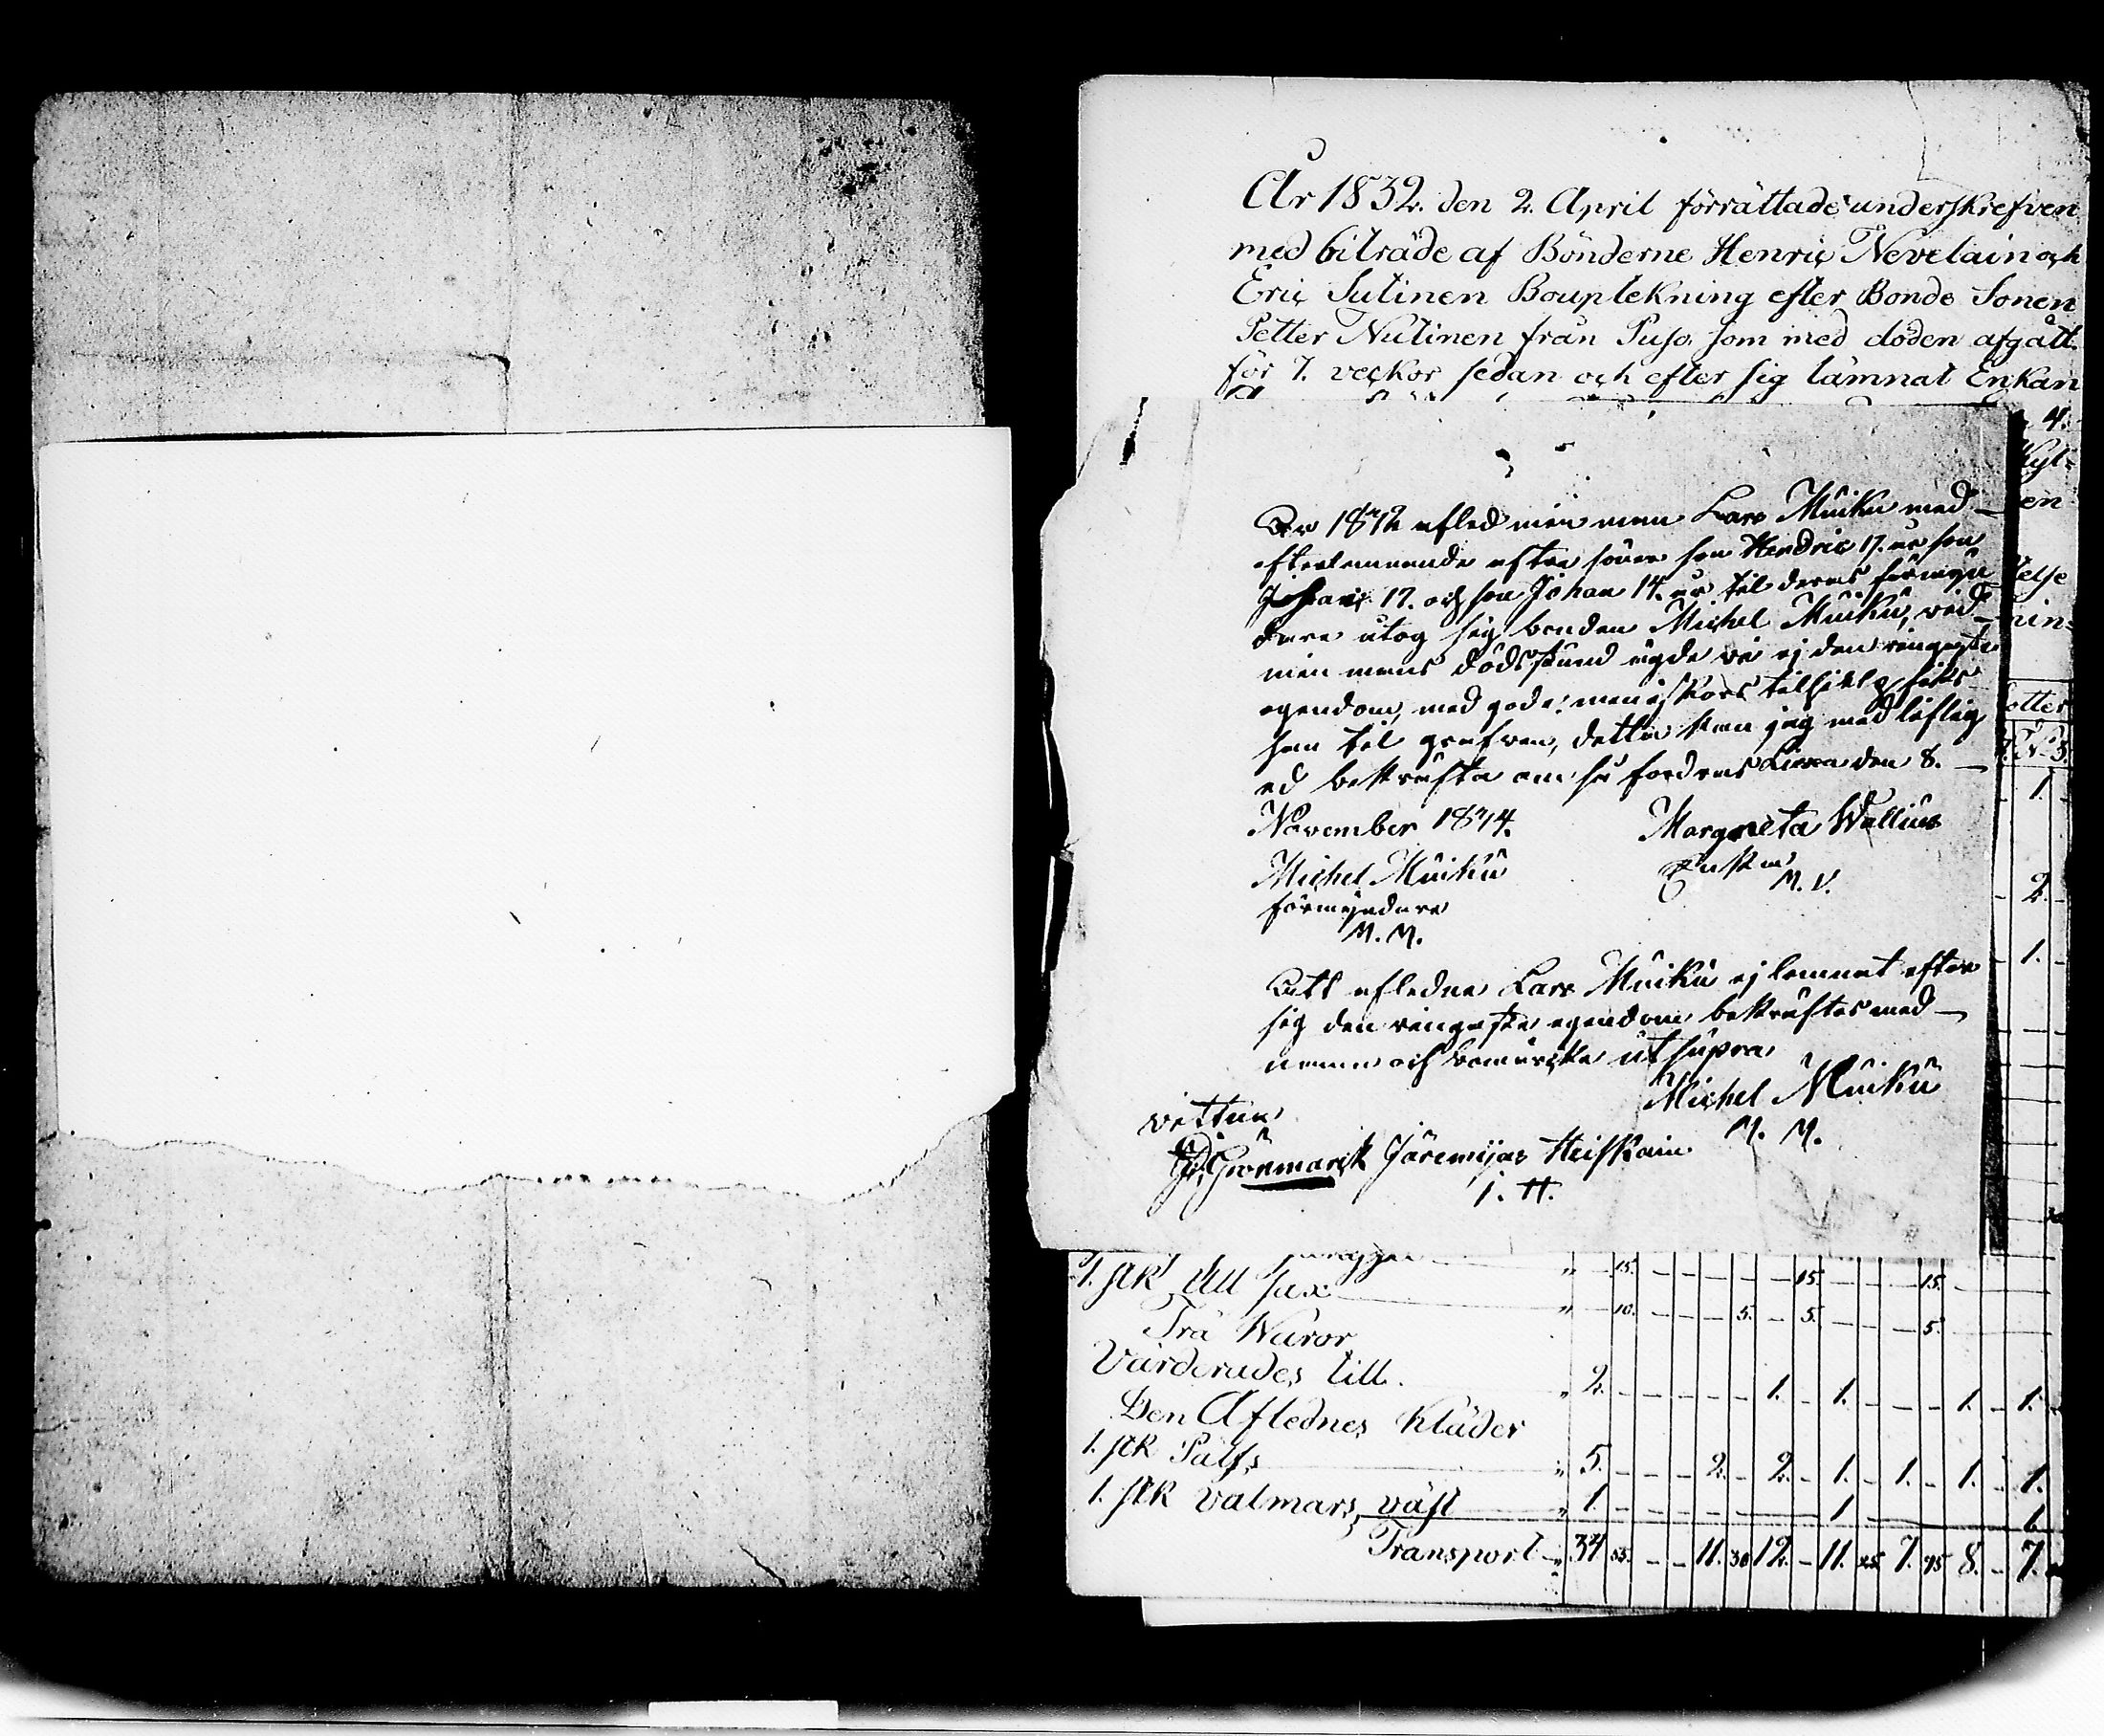 År 1832. den 2. April förrättade underskrefven
med biträde af Bönderne Henric Nevelain och
Eric Sutinen Bouptekning efter Bonde Sonen
Petter Nutinen från Puso, som med döden afgått
för 7. veckor sedan och efter sig lämnat Enkan
4.
en
else
nin=
otter
1.
2.
1.
År 1812 afled min man Lars Muikú med
efterlemnande eftre söner son Hendric 17. år son
17. och son Johan 14. år til deras förmyn
dare utog sig bonden Michel Muikú, wid
min mans dödsstund ägde wi ej den ringeste
egendom, med goda meniskors tilhielp
han til grafwen, detta kan jag med liflig
ed bekräfta om så fordras den 8.
November 1814.
Margreta Wallius
Enkan
M. V.
Michel Muikú
förmyndare
M. M.
Att aflednes Lars Muikú ej lemnat efter
sig den ringeste egendom bekräftes med
namn och bomärke ut supra
Michel Muikú
M. M.
vittna
Gronmarck Järemijas Heiskain
i. H.
1. stk Ull sax " 15. 15. 15.
Trä Waror " 10. 5. 5. 5.
Värderades till. " 2. 1. 1. 1. 1.
Den Aflednes Kläder
1. stk Pälss " 5. 2. 2. 1. 1. 1. 1.
1. stk valmars väst " 1. 1. 1.
Transport " 34 55. 11. 30 12. 11. 25 7. 75 8. 7.